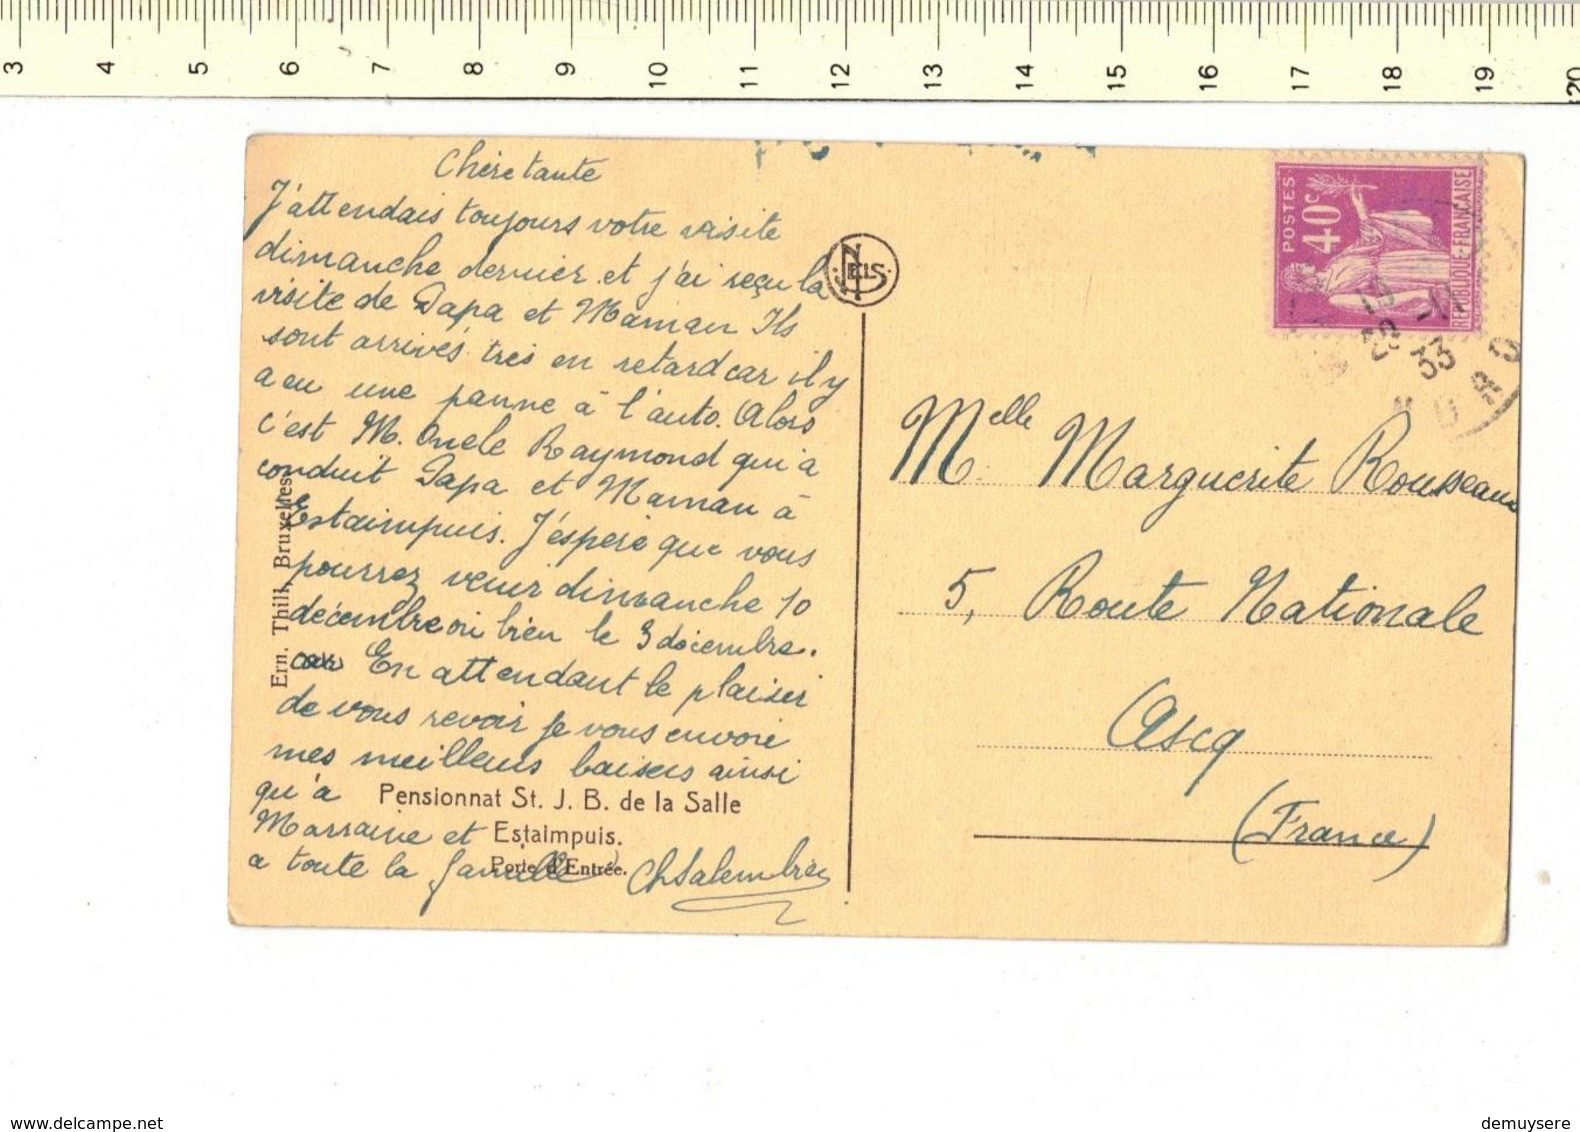 3 4 5 6 7 8 9 10 11 12 13 14 15 16 17 18 19 20
Chère tante
J'attendais toujours votre visite
dimanche dernier et j'ai reçu la
visite de Papa et Maman Ils
sont arrivés très en retard car il y
a eu une panne à l'auto. Alors
c'est M. Oncle Raymond qui a
conduit Papa et Maman à
Estaimpuis. J'éspère que vous
pourrez venir dimanche 10
décembre ou bien le 3 décembre.
car En attendant le plaisir
de vous revoir je vous envoie
mes meilleurs baisers ainsi
qu'à
Marraine et
a toute la famille
Pensionnat St. J. B. de la Salle
Estaimpuis.
Porte d'Entrée.
Ern. Thill, Bruxelles
NELS
POSTES
40c
REPUBLIQUE FRANÇAISE
33
Melle Marguerite Rousseaux
5, Route Nationale
Ascq
(France)
www.delcampe.net
demuysere